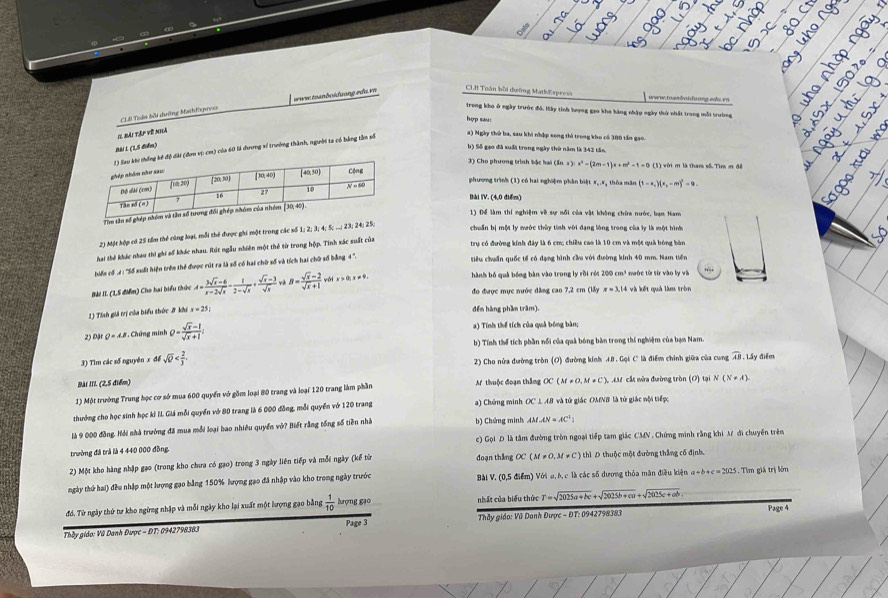 CLB Toán bồi dưỡng MathExpress www.toanboiduong.edu.vn
II. BÀI TẬP VỀ NHÀ
Bài I. (1,5 điểm)
1) Sau khi thống kê độ dài (đơn vị: cm) của 60 lá dương xỉ trưởng thành, người ta có bảng tần số
ghép nhóm như sau:
Độ dài (cm) [10; 20) [20; 30) [30; 40) [40; 50) Cộng
Tần số (n) 7 16 27 10 N = 60
Tìm tần số ghép nhóm và tần số tương đối ghép nhóm của nhóm [30; 40).
2) Một hộp có 25 tấm thẻ cùng loại, mỗi thẻ được ghi một trong các số 1; 2; 3; 4; 5; ...; 23; 24; 25;
hai thẻ khác nhau thì ghi số khác nhau. Rút ngẫu nhiên một thẻ từ trong hộp. Tính xác suất của
biến cố A: "Số xuất hiện trên thẻ được rút ra là số có hai chữ số và tích hai chữ số bằng 4".
Bài II. (1,5 điểm) Cho hai biểu thức A = (3√x − 6)/(x − 2√x) − 1/(2 − √x) + (√x − 3)/√x và B = (√x − 2)/(√x + 1) với x > 0; x ≠ 9.
1) Tính giá trị của biểu thức B khi x = 25;
2) Đặt Q = A.B. Chứng minh Q = (√x − 1)/(√x + 1);
3) Tìm các số nguyên x để √Q < 2/3.
Bài III. (2,5 điểm)
1) Một trường Trung học cơ sở mua 600 quyển vở gồm loại 80 trang và loại 120 trang làm phần
thưởng cho học sinh học kì II. Giá mỗi quyển vở 80 trang là 6 000 đồng, mỗi quyển vở 120 trang
là 9 000 đồng. Hỏi nhà trường đã mua mỗi loại bao nhiêu quyển vở? Biết rằng tổng số tiền nhà
trường đã trả là 4 440 000 đồng.
2) Một kho hàng nhập gạo (trong kho chưa có gạo) trong 3 ngày liên tiếp và mỗi ngày (kể từ
ngày thứ hai) đều nhập một lượng gạo bằng 150% lượng gạo đã nhập vào kho trong ngày trước
đó. Từ ngày thứ tư kho ngừng nhập và mỗi ngày kho lại xuất một lượng gạo bằng 1/10 lượng gạo
Thầy giáo: Vũ Danh Được – ĐT: 0942798383 Page 3
CLB Toán bồi dưỡng MathExpress www.toanboiduong.edu.vn
trong kho ở ngày trước đó. Hãy tính lượng gạo kho hàng nhập ngày thứ nhất trong mỗi trường
hợp sau:
a) Ngày thứ ba, sau khi nhập xong thì trong kho có 380 tấn gạo.
b) Số gạo đã xuất trong ngày thứ năm là 342 tấn.
3) Cho phương trình bậc hai (ẩn x): x² − (2m − 1)x + m² − 1 = 0 (1) với m là tham số. Tìm m để
phương trình (1) có hai nghiệm phân biệt x₁, x₂ thỏa mãn (1 − x₁)(x₂ − m)² = 0.
Bài IV. (4,0 điểm)
1) Để làm thí nghiệm về sự nổi của vật không chứa nước, bạn Nam
chuẩn bị một ly nước thủy tinh với dạng lòng trong của ly là một hình
trụ có đường kính đáy là 6 cm; chiều cao là 10 cm và một quả bóng bàn
tiêu chuẩn quốc tế có dạng hình cầu với đường kính 40 mm. Nam tiến
hành bỏ quả bóng bàn vào trong ly rồi rót 200 cm³ nước từ từ vào ly và
đo được mực nước dâng cao 7,2 cm (lấy π ≈ 3,14 và kết quả làm tròn
đến hàng phần trăm).
a) Tính thể tích của quả bóng bàn;
b) Tính thể tích phần nổi của quả bóng bàn trong thí nghiệm của bạn Nam.
2) Cho nửa đường tròn (O) đường kính AB. Gọi C là điểm chính giữa của cung AB. Lấy điểm
M thuộc đoạn thẳng OC (M ≠ O, M ≠ C), AM cắt nửa đường tròn (O) tại N (N ≠ A).
a) Chứng minh OC ⊥ AB và tứ giác OMNB là tứ giác nội tiếp;
b) Chứng minh AM.AN = AC²;
c) Gọi D là tâm đường tròn ngoại tiếp tam giác CMN. Chứng minh rằng khi M di chuyển trên
đoạn thẳng OC (M ≠ O, M ≠ C) thì D thuộc một đường thẳng cố định.
Bài V. (0,5 điểm) Với a, b, c là các số dương thỏa mãn điều kiện a + b + c = 2025. Tìm giá trị lớn
nhất của biểu thức T = √(2025a + bc) + √(2025b + ca) + √(2025c + ab).
Thầy giáo: Vũ Danh Được – ĐT: 0942798383 Page 4